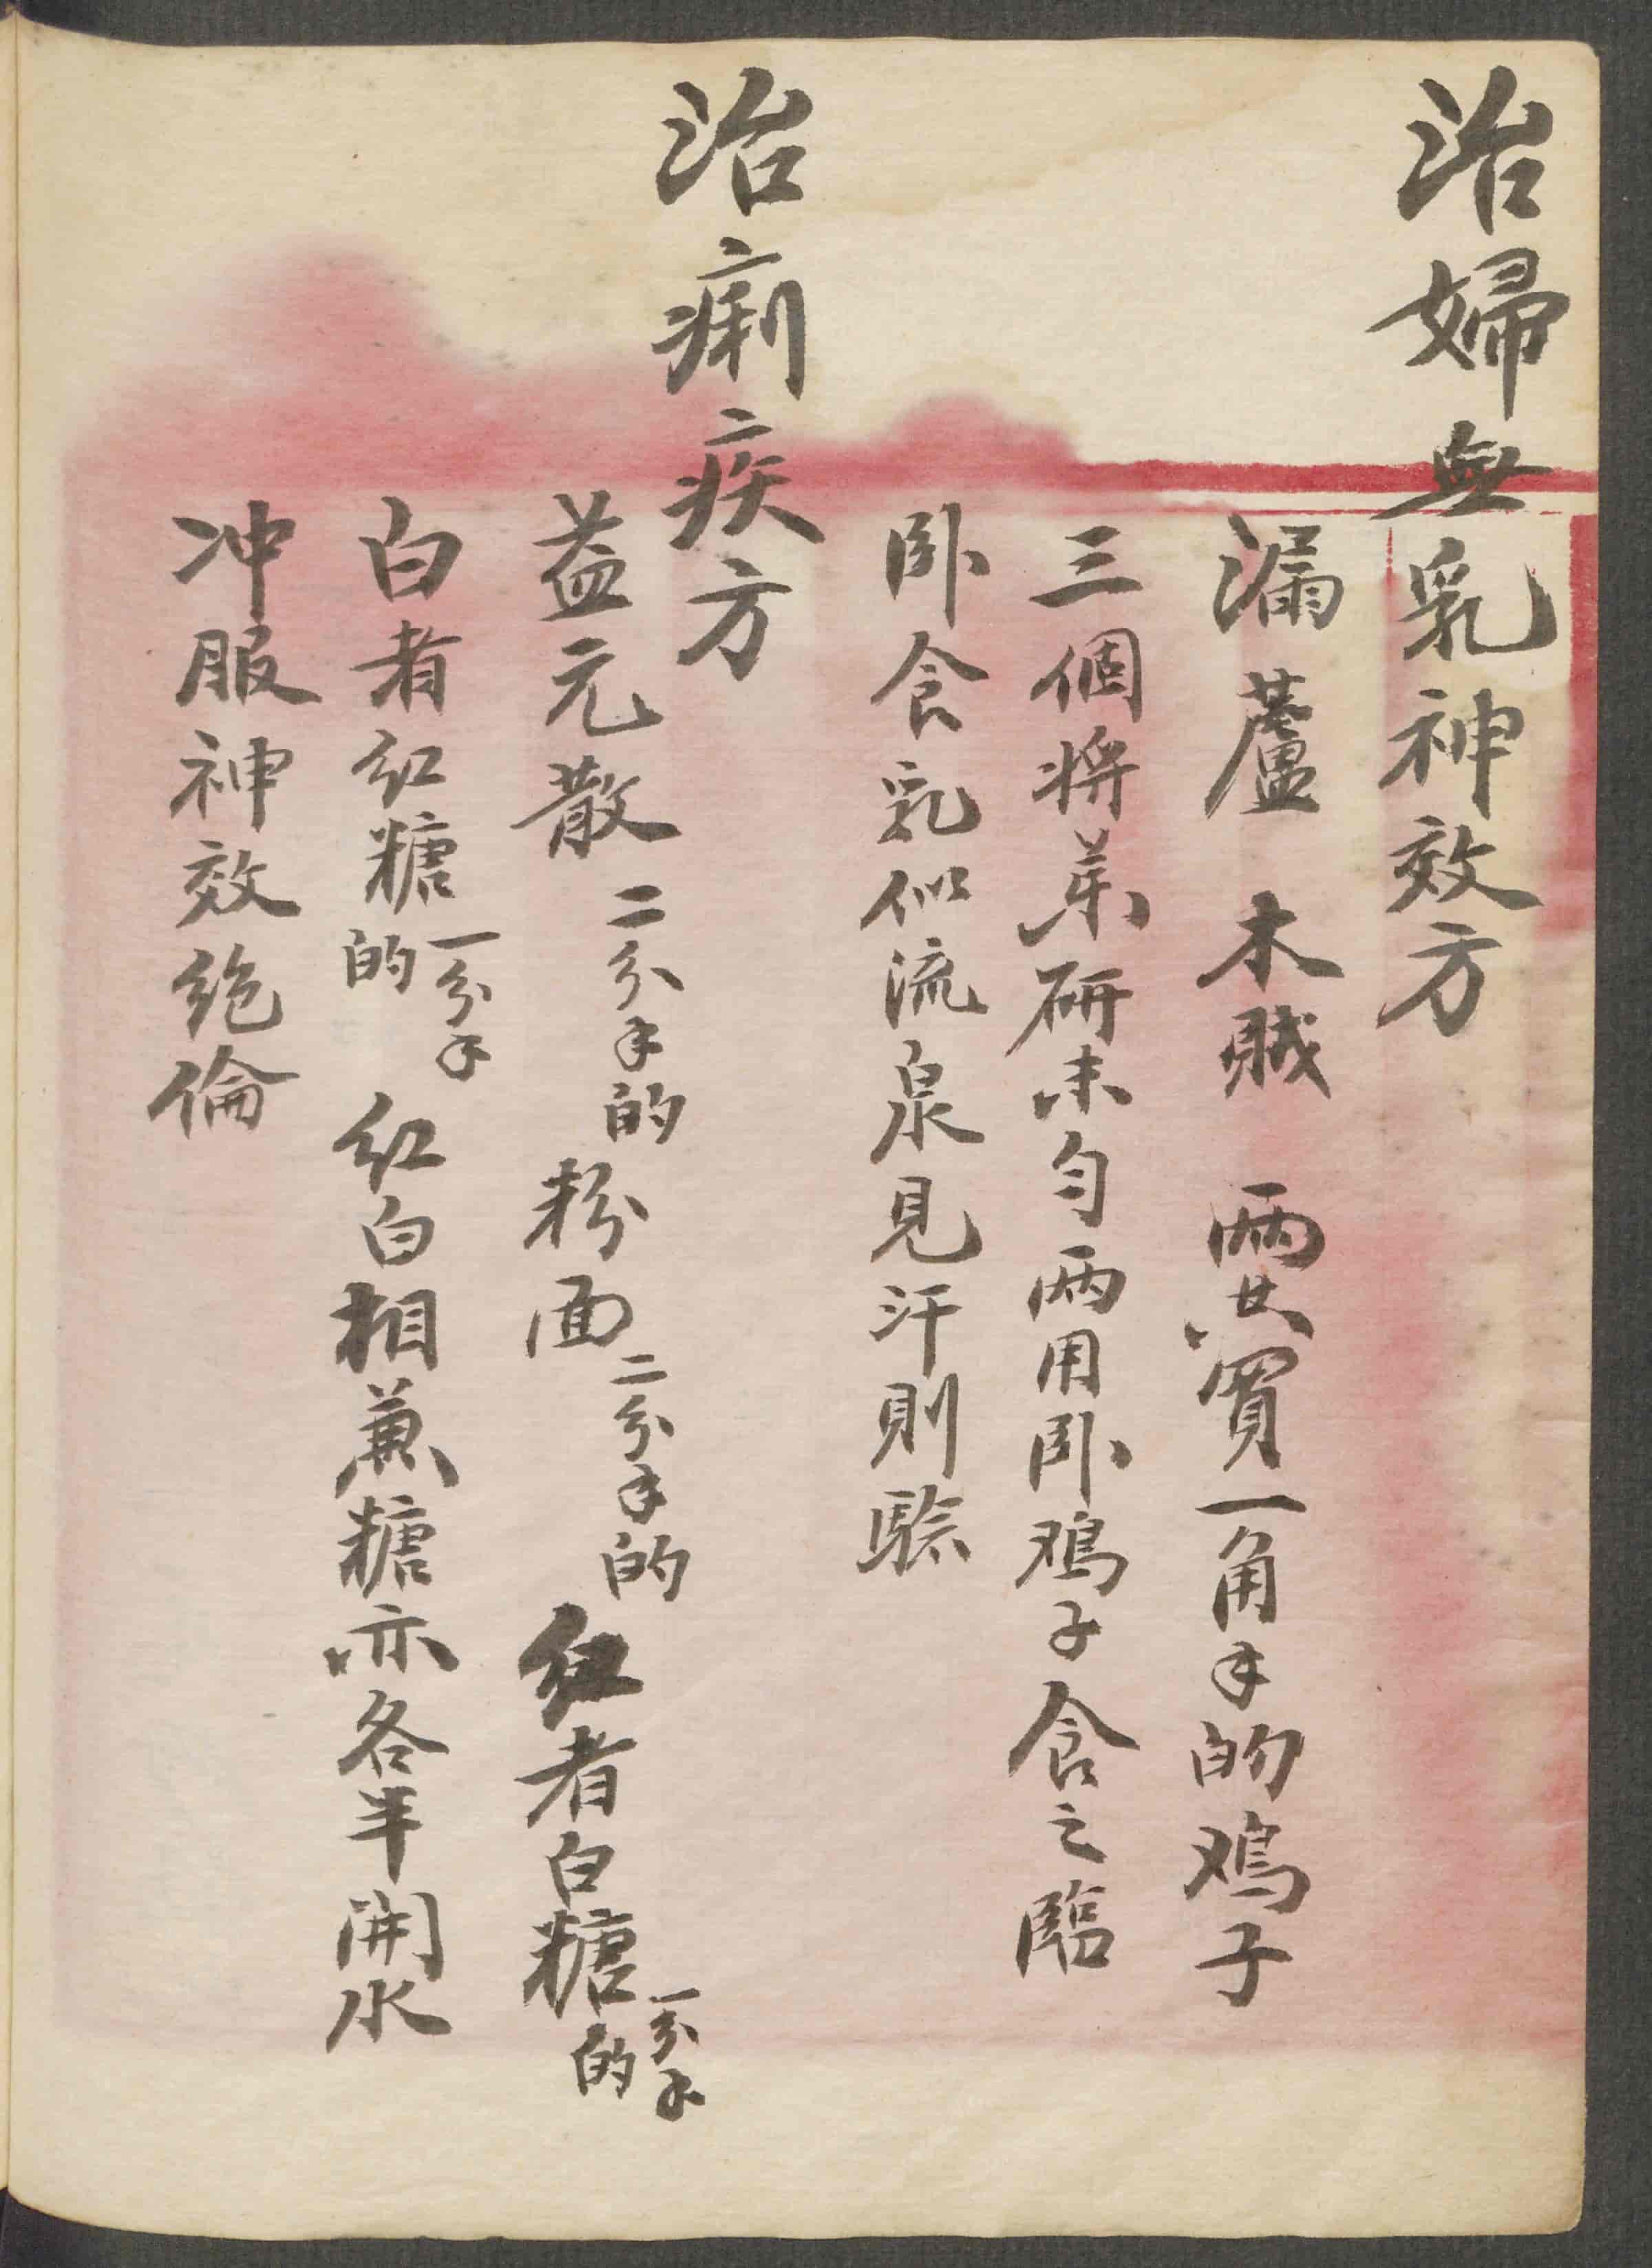 治婦無乳神效方
漏蘆 木賊 兩共買一角手的鳮子
三個將葯研末勻兩用卧鳮子食之臨
卧食乳似流泉見汗則驗
治痢疾方
益元散二分手的粉面二分手的紅者白糖一分手的
白者紅糖一分手的紅白相兼糖亦各半開水
冲服神效絶倫